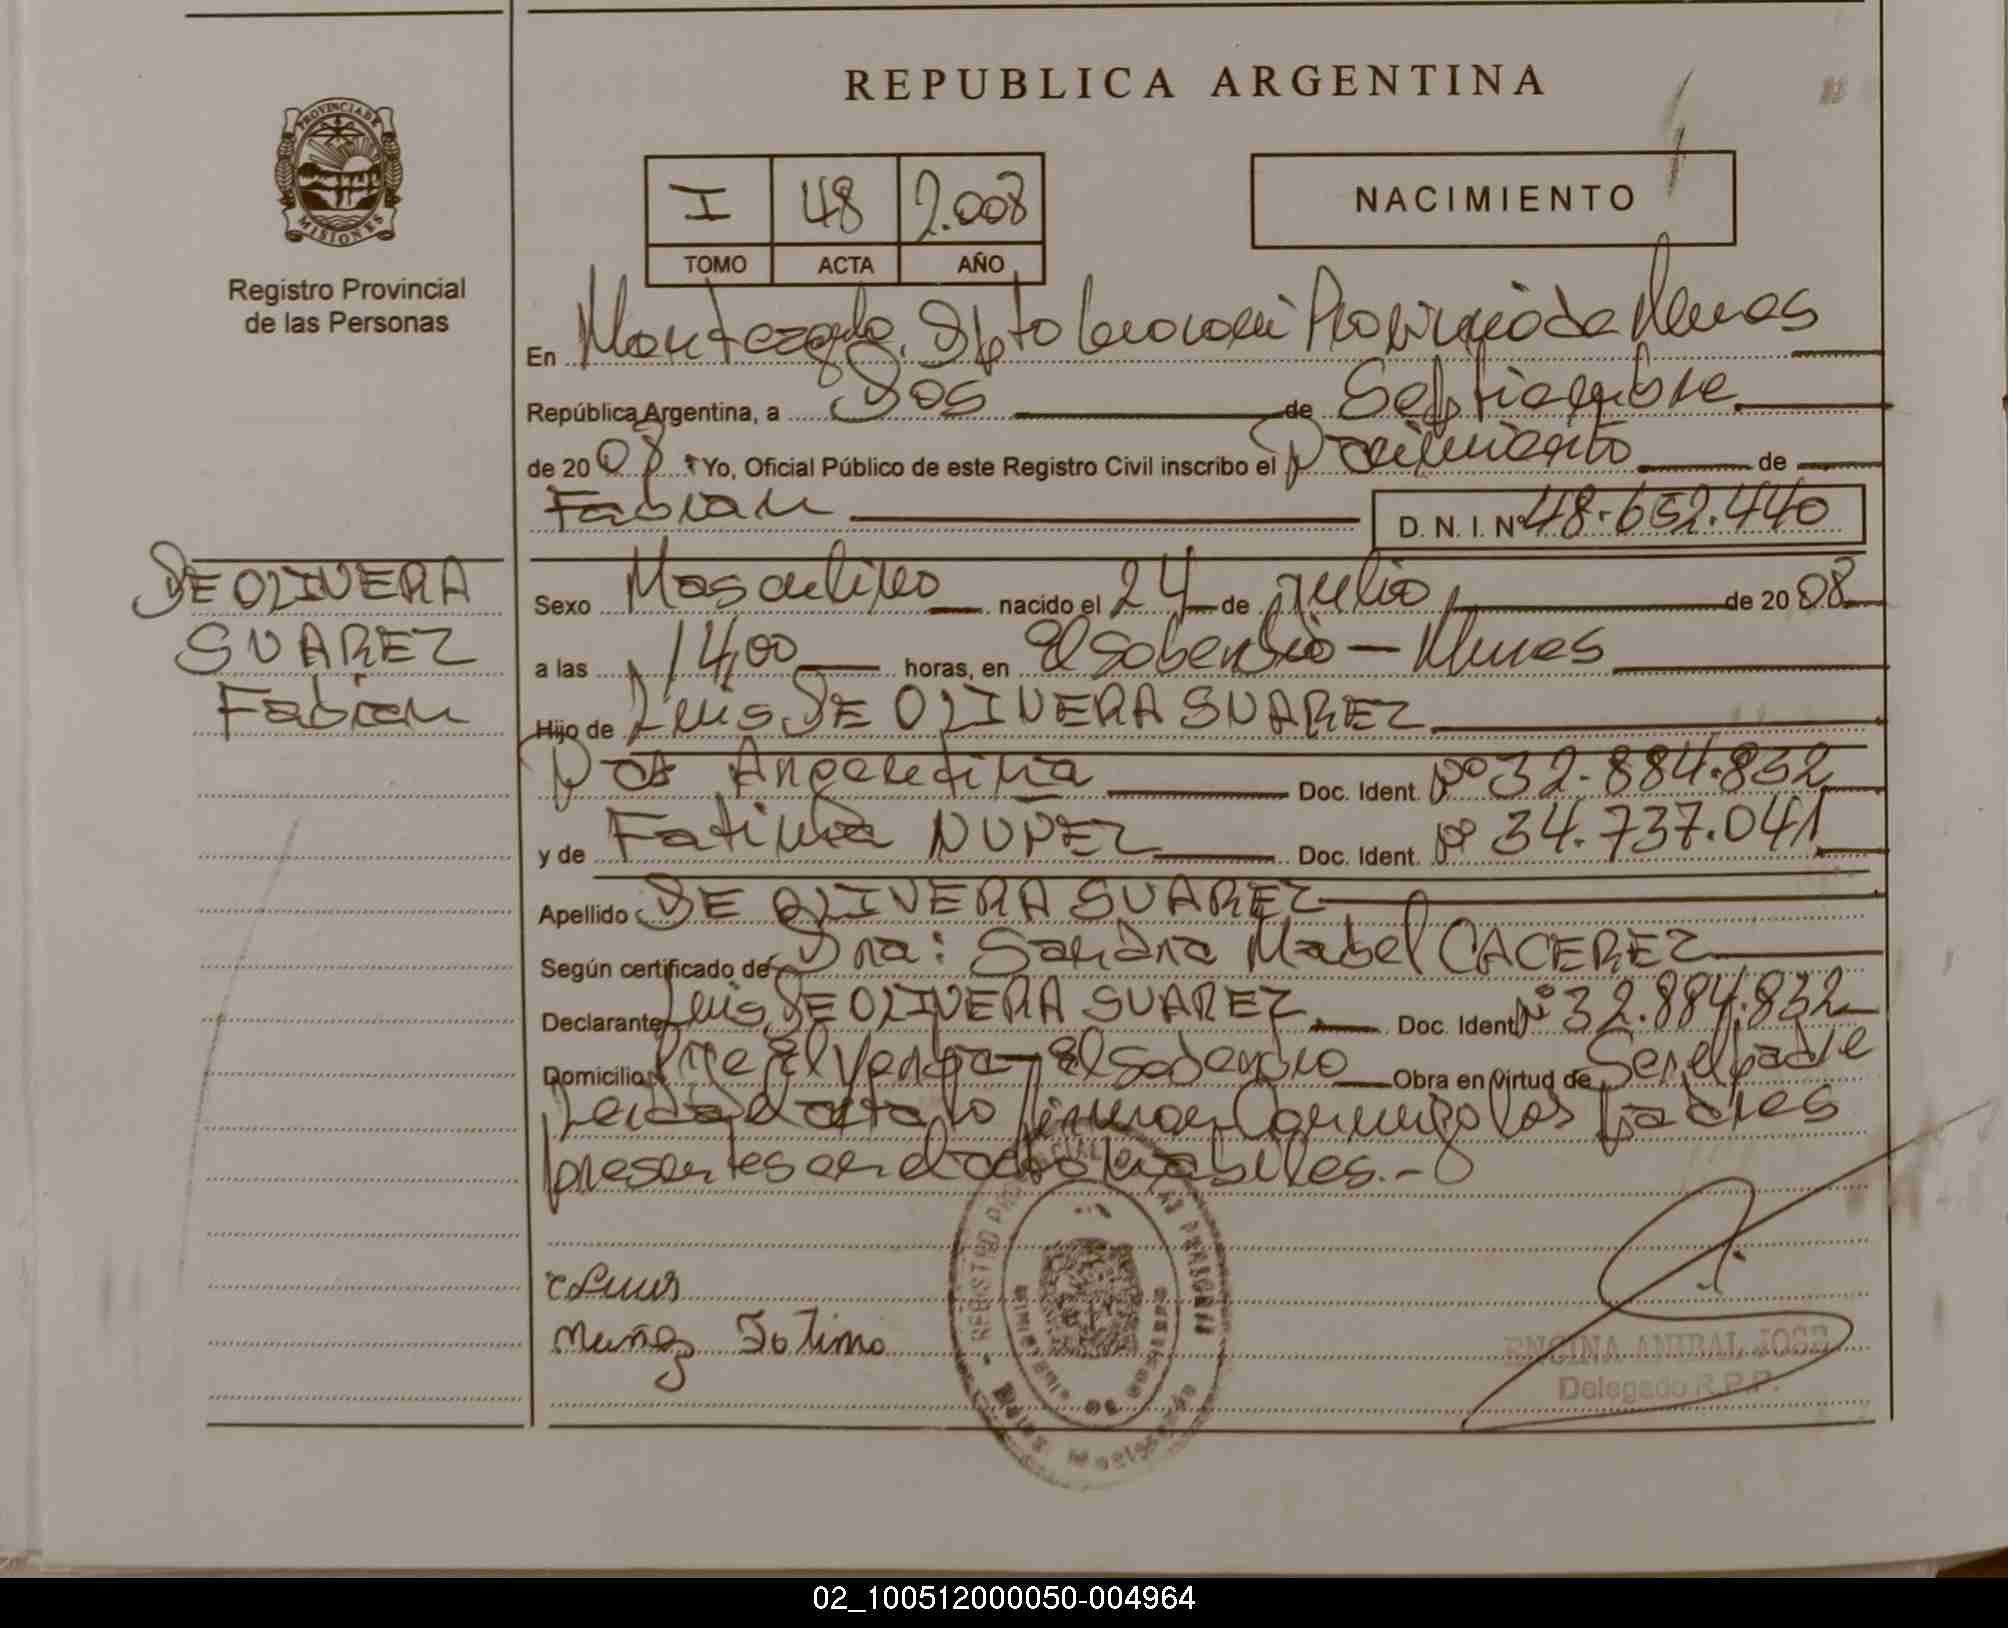 REPUBLICA ARGENTINA
PROVINCIA DE
MISIONES
Registro Provincial
de las Personas
I 48 2.008
TOMO ACTA AÑO
NACIMIENTO
En Monteagudo, Dpto Guarani Provincia de Mnes
República Argentina, a Dos de Septiembre
de 2008 Yo, Oficial Público de este Registro Civil inscribo el Nacimiento de
Fabian D. N. I. Nº 48.652.440
DE OLIVERA
SUAREZ
Fabian
Sexo Masculino nacido el 24 de Julio de 2008
a las 14,00 horas, en El Soberbio - Mnes
Hijo de Luis DE OLIVERA SUAREZ
Nac Argentina Doc. Ident. Nº 32.884.832
y de Fatima NUÑEZ Doc. Ident. Nº 34.737.041
Apellido DE OLIVERA SUAREZ
Según certificado de Dra: Sandra Mabel CACEREZ
Declarante Luis DE OLIVERA SUAREZ Doc. Ident Nº 32.884.832
Domicilio El Soberbio Obra en virtud de Ser el padre
Leida el acta lo firman Conmigo los padres
presentes en el acto habiles.-
Luis
Nuñez Fatima
REGISTRO
ENCINA ANIBAL JOSE
Delegado R.P.P.
02_100512000050-004964